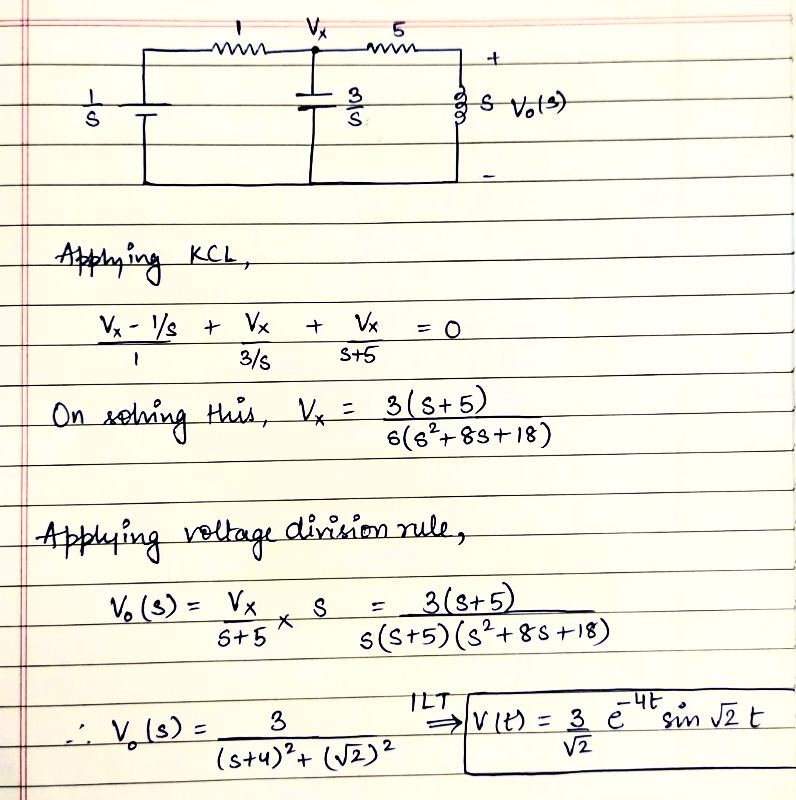 1 Vx 5
+
1/s 3/s s Vo(s)
-
Applying KCL,
(Vx - 1/s)/1 + Vx/(3/s) + Vx/(s+5) = 0
On solving this, Vx = 3(s+5)/(s(s²+8s+18))
Applying voltage division rule,
Vo(s) = Vx/(s+5) × s = 3(s+5)/(s(s+5)(s²+8s+18))
∴ Vo(s) = 3/((s+4)²+(√2)²) ILT ⇒ V(t) = 3/√2 e^-4t sin √2 t